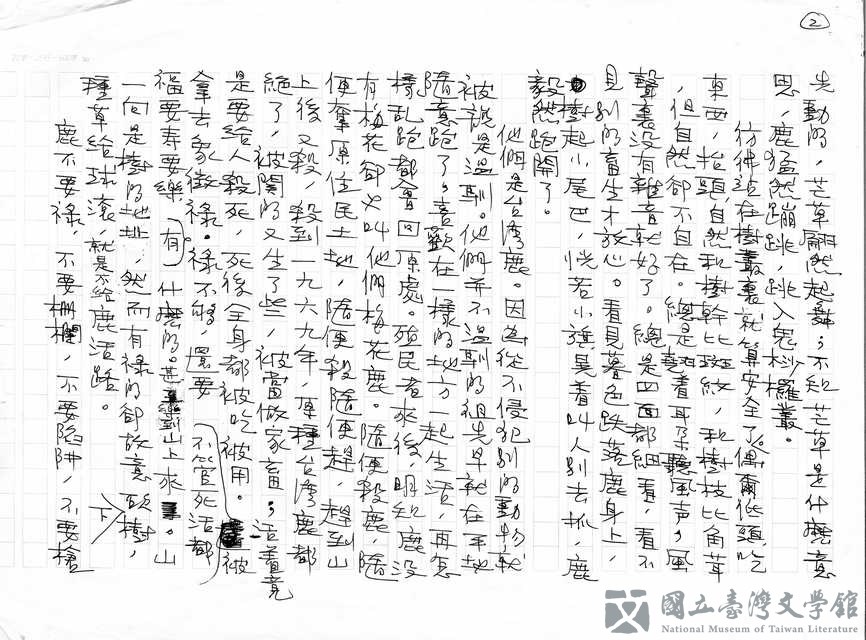 2
先動的，芒草翩然起舞；不知芒草是什麼意
思，鹿猛然蹦跳，跳入鬼桫欏叢。
彷彿站在樹叢裏就算安全了。偶爾低頭吃
東西，抬頭，自然和樹幹比斑紋，和樹枝比角茸
，但自然卻不自在。總是豎着耳朵聽風聲。風
聲裏沒有雜音就好了。總是四面都細看，看不
見別的畜生才放心。看見暮色跌落鹿身上，
樹起小尾巴，恍若小旗晃着叫人別去抓，鹿
毅然跑開了。
他們是台灣鹿。因為從不侵犯別的動物就
被說是溫馴。他們並不溫馴的祖先早就在平地
隨意跑了。喜歡在一樣的地方一起生活，再怎
樣乱跑都會回原處。殖民者來後，明知鹿沒
有梅花卻叫他們梅花鹿。隨便殺鹿，隨
便奪原住民土地，隨便殺隨便趕，趕到山
上後又殺，殺到一九六九年，原種台灣鹿都
絕了，被關的又生了些，被當做家畜；活着竟
是要給人殺死，死後全身都被吃被用。被
拿去象徵祿。祿不夠，還要不管死活都
福要壽要樂有什麼的。甚至到山上來。山
一向是樹的地址，然而有祿的卻故意砍樹，
種草給球滾，就是不給鹿活路。
下
鹿不要祿，不要柵欄，不要陷阱，不要槍
國立臺灣文學館
National Museum of Taiwan Literature